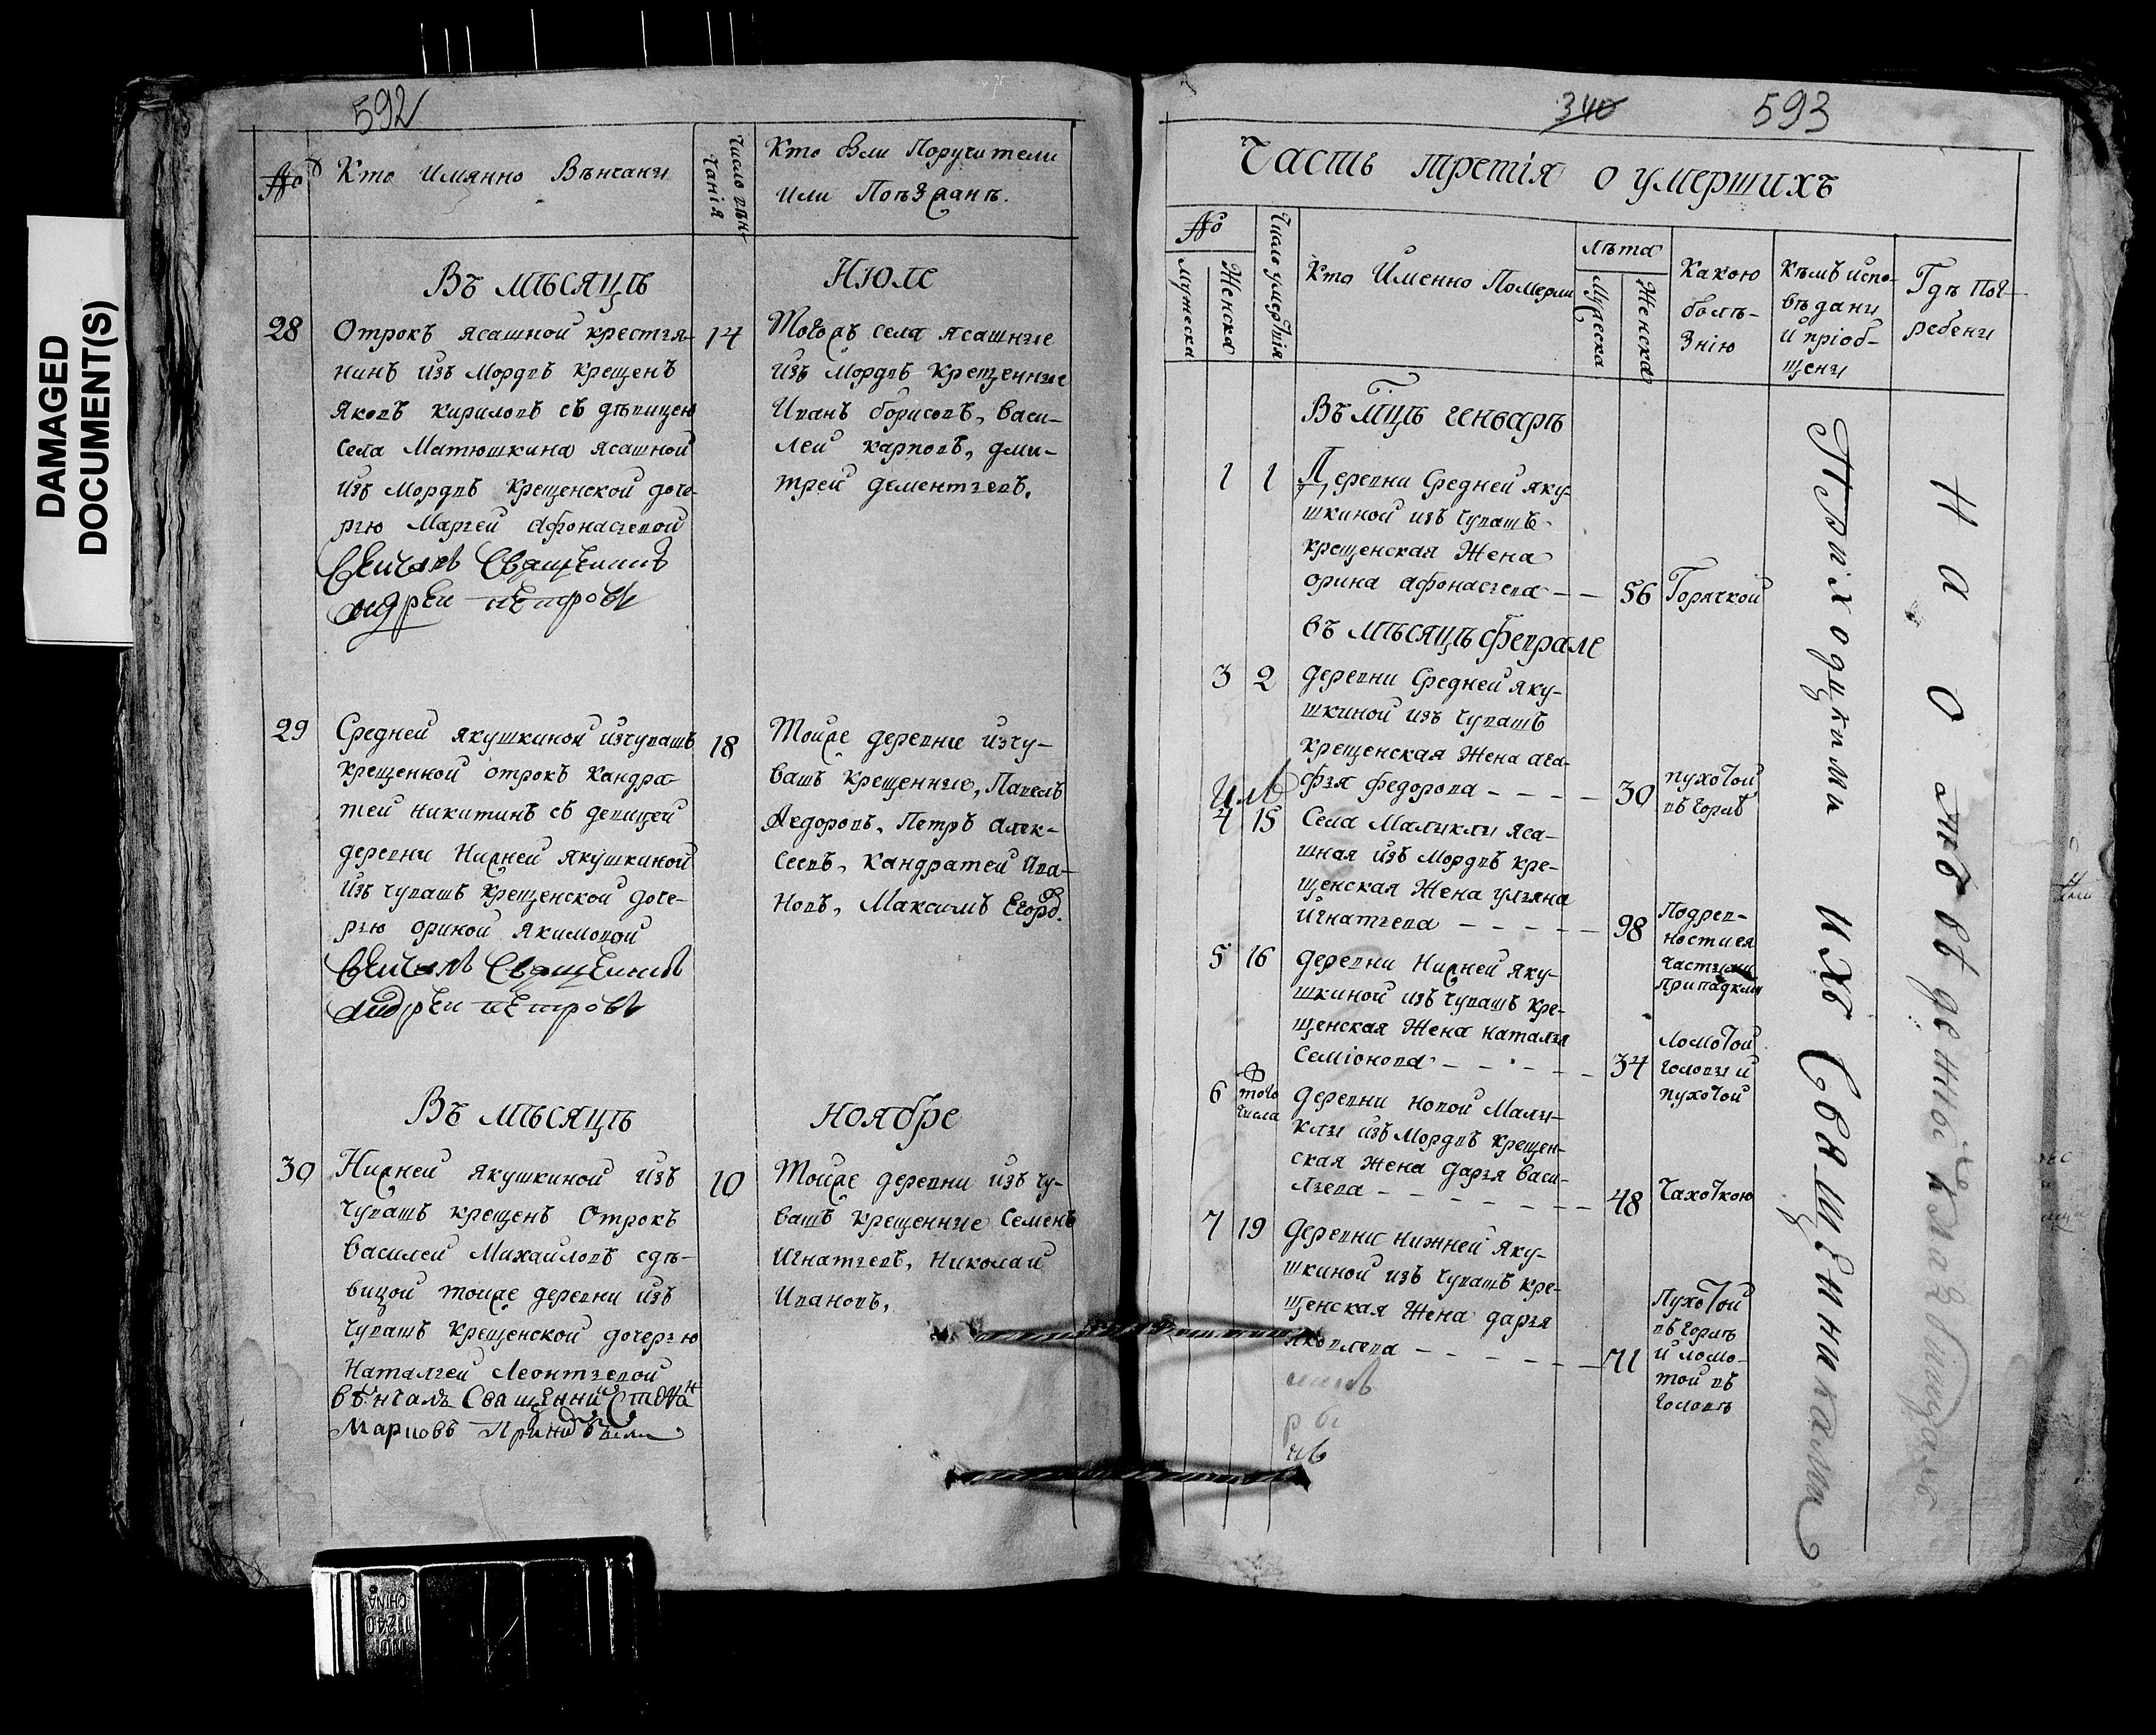 DAMAGED
DOCUMENT(S)
592
№
Кто имянно Вѣнчаны
Число вѣн-
чанія
Кто были Поручители
или Поѣзжанѣ.
Въ мѣсяцѣ Июле
28
Отрокъ ясашной крестья-
нинъ изъ Мордвъ крещенъ
Яковъ Кириловъ съ дѣвицею
села Матюшкина ясашной
изъ Мордвъ крещенской доче-
рью Марьей Афонасьевой
Венчалъ Священникъ
Андреи Петровъ
14
Тогожъ села ясашные
изъ Мордвъ крещенные
Иванъ Борисовъ, Васи-
лей Карповъ, Дми-
трей Дементьевъ.
29
Средней Якушкиной изчувашъ
крещенной отрокъ Кандра-
тей Никитинъ съ девицей
деревни Нижней Якушкиной
изъ чувашъ крещенской доче-
рью Ориной Якимовой
Венчалъ Священникъ
Андреи Петровъ
18
Тойже деревни изчу-
вашъ крещенные, Павелъ
Федоровъ, Петръ Алек-
сеевъ, Кандратей Ива-
новъ, Максимъ Егоро.
Въ мѣсяцѣ Ноябре
30
Нижней Якушкиной изъ
чувашъ крещенъ Отрокъ
Василей Михайловъ сдѣ-
вицой тойже деревни изъ
чувашъ крещенской дочерью
Натальей Леонтьевой
вѣнчалъ Священникъ Стефанъ
Марковъ
10
Тойже деревни изъ чу-
вашъ крещенные Семенъ
Игнатьевъ, Николай
Ивановъ.
340 593
Часть третія о умершихъ
№
Мужеска
Женска
Число умертвія
Кто Именно Померли
лѣта
Мужеска
Женска
Какою
болѣ-
знію
Кѣмъ испо-
вѣданы
и пріоб-
щены
Гдѣ Пог-
ребены
Въ мцѣ генварѣ
1 1 Деревни Средней Яку-
шкиной изъ чувашъ
крещенская Жена
Орина Афонасьева - - 56 Горячкой
въ мѣсяцѣ феврале
3 2 деревни Средней Яку-
шкиной изъ чувашъ
крещенская Жена Ага-
фья Федорова - - - - 30 пухотой
въ горлѣ
4 15 Села Малыклы яса-
шная изъ Мордвъ кре-
щенская Жена Ульяна
Игнатьева - - - - - 98
частыми
припадкми
5 16 деревни Нижней Яку-
шкиной изъ чувашъ кре-
щенская Жена Наталья
Семіонова - - - - - 34 ломотой
головы и
пухотой
6 того
числа
деревни новой Малы-
клы изъ Мордвъ крещен-
ская жена Дарья Васи-
льева - - - - - - 48 Чахоткою
7 19 деревни нижней Яку-
шкиной изъ чувашъ кре-
щенская Жена Дарья
Яковлева - - - - - - 71 Пухотой
въ горлѣ
и ломо-
той въ
головѣ
Приходскими ихъ Священниками
На отведенномъ кладбище